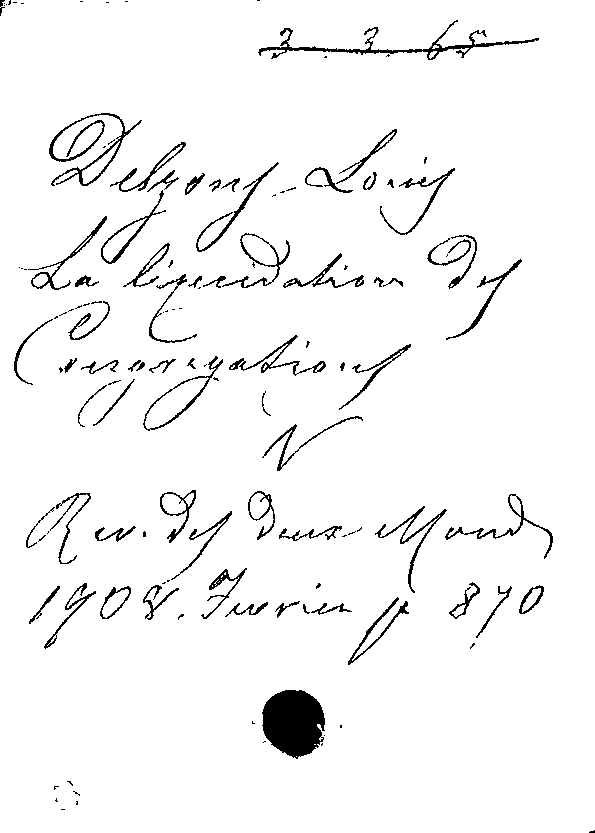 3 3 65
Delzons Louis
La liquidation des
Congregations
N
Rev. des deux Mondes
1908. Fevrier p 870